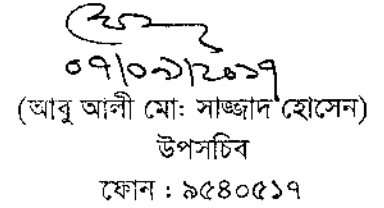 ০৭/০৯/২০১৭
(আবু আলী মো: সাজ্জাদ হোসেন)
উপসচিব
ফোন : ৯৫৪০৫১৭